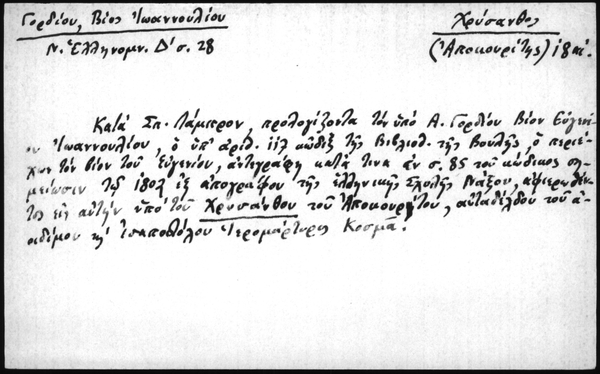 Γορδίου, Βίος Ἰωαννουλίου
Ν. Ἑλληνομν. Δ' σ. 28
Χρύσανθος
(Ἀποκουρίτης) 18 αἰ.
Κατά Σπ. Λάμπρον, προλογίζοντα τόν ὑπό Α. Γορδίου Βίον Εὐγενί-
ου Ἰωαννουλίου, ὁ ὑπ' ἀριθ. κῶδιξ τῆς Βιβλιοθ. τῆς Βουλῆς, ὁ περιέ-
χων τόν βίον τοῦ Εὐγενίου, ἀντεγράφη κατά τινα ἐν σ. 85 τοῦ κώδικος ση-
μείωσιν τῷ ἐξ ἀπογράφου τῆς ἑλληνικῆς Σχολῆς Νάξου, ἀφιερωθέν-
τος εἰς αὐτήν ὑπό τοῦ Χρυσάνθου τοῦ Ἀποκουρίτου, αὐταδέλφου τοῦ ἀ-
οιδίμου κ' ἰσαποστόλου Ἱερομάρτυρος Κοσμᾶ.